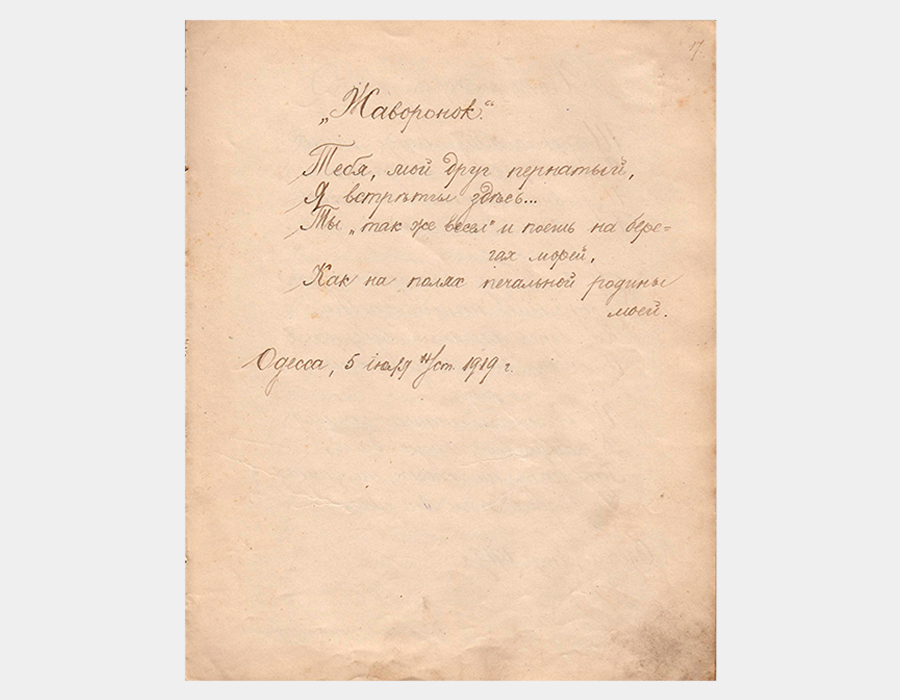 17.
„Жаворонок.“
Тебя, мой друг пернатый,
Я встрѣтил здѣсь...
Ты „так же весел“ и поешь на бере=
гах морей,
Как на полях печальной родины
моей.
Одесса, 5 іюля н/ст. 1919 г.